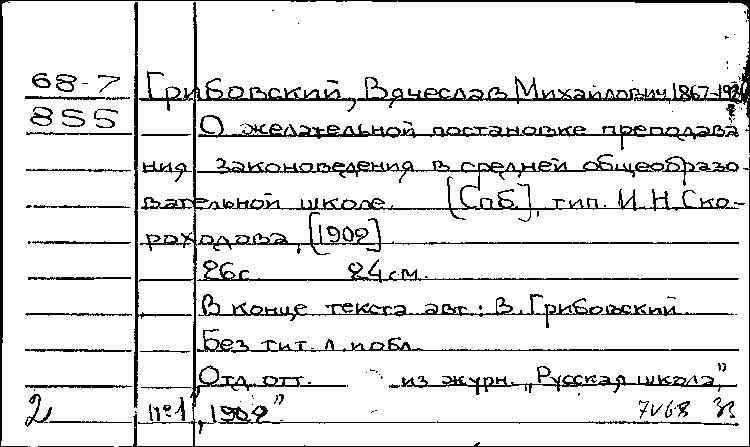 68-7 Грибовский, Вячеслав Михайлович, 1867-
855 О желательной постановке преподава-
ния законоведения в средней общеобразо-
вательной школе. [Спб], тип. И. Н. Ско-
роходова, [1902]
26с. 24см.
В конце текста авт.: В. Грибовский.
Без тит. л. и обл.
Отд. отт. из журн. „Русская школа",
2 №1, 1902" 7V68